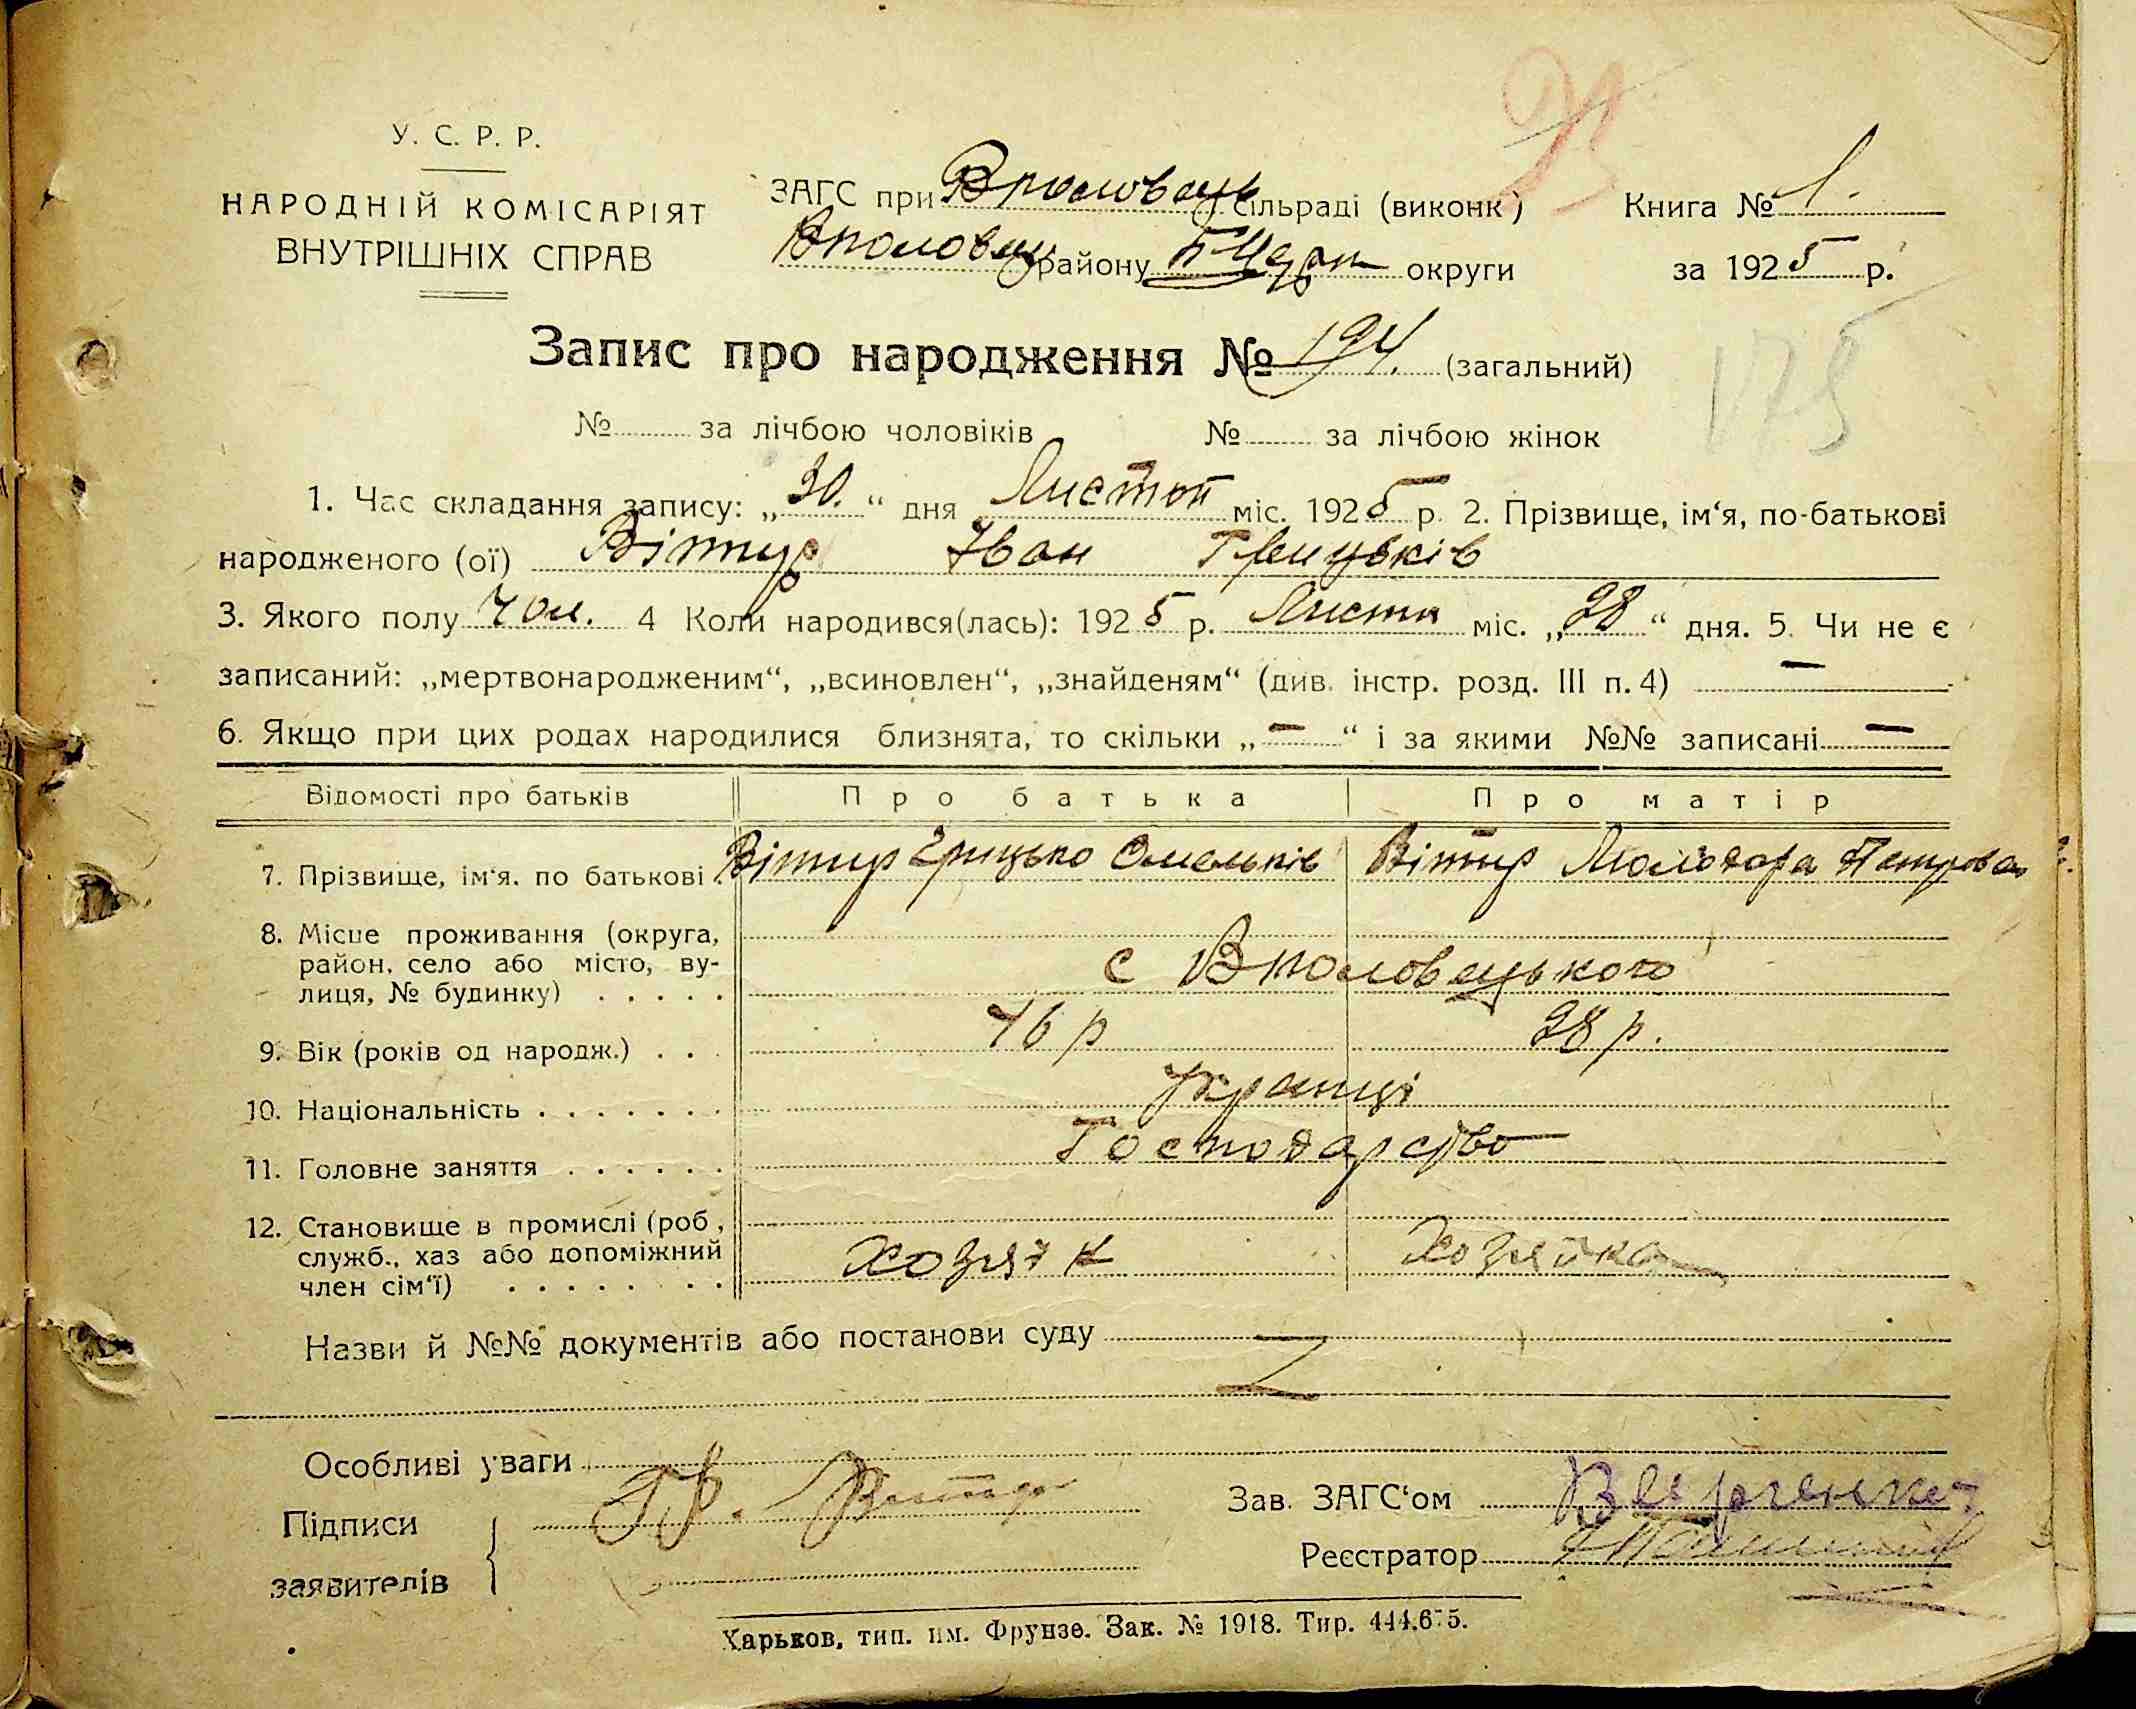 У. С. Р. Р.
НАРОДНІЙ КОМІСАРІЯТ
ВНУТРІШНІХ СПРАВ
ЗАГС при Вполовець сільраді (виконк)
Вполовец району Б Церк округи
Книга № 1.
за 1925 р.
175
Запис про народження № 194. (загальний)
№ за лічбою чоловіків № за лічбою жінок
1. Час складання запису: „30.“ дня Листоп міс. 1925 р. 2. Прізвище, ім‘я, по-батькові
народженого (ої) Вітир Іван Грицьків
3. Якого полу чол. 4 Коли народився(лась): 1925 р. Листп міс. „28“ дня. 5. Чи не є
записаний: „мертвонародженим“, „всиновлен“, „знайденям“ (див. інстр. розд. III п. 4) —
6. Якщо при цих родах народилися близнята, то скільки „—“ і за якими №№ записані —
Відомості про батьків Про батька Про матір
7. Прізвище, ім‘я. по батькові Вітир Грицько Омельків Вітир Петрова
8. Місце проживання (округа,
район, село або місто, ву-
лиця, № будинку) с Вполовецького
9. Вік (років од народж.) 46 р 28 р.
10. Національність Украінці
11. Головне заняття Господарство
12. Становище в промислі (роб,
служб., хаз або допоміжний
член сім‘ї) хозяїн хозяйка
Назви й №№ документів або постанови суду
Особливі уваги
Підписи
заявителів
Гр. Витер
Зав. ЗАГС‘ом
Реєстратор
Харьков, тип. им. Фрунзе. Зак. № 1918. Тир. 444.675.